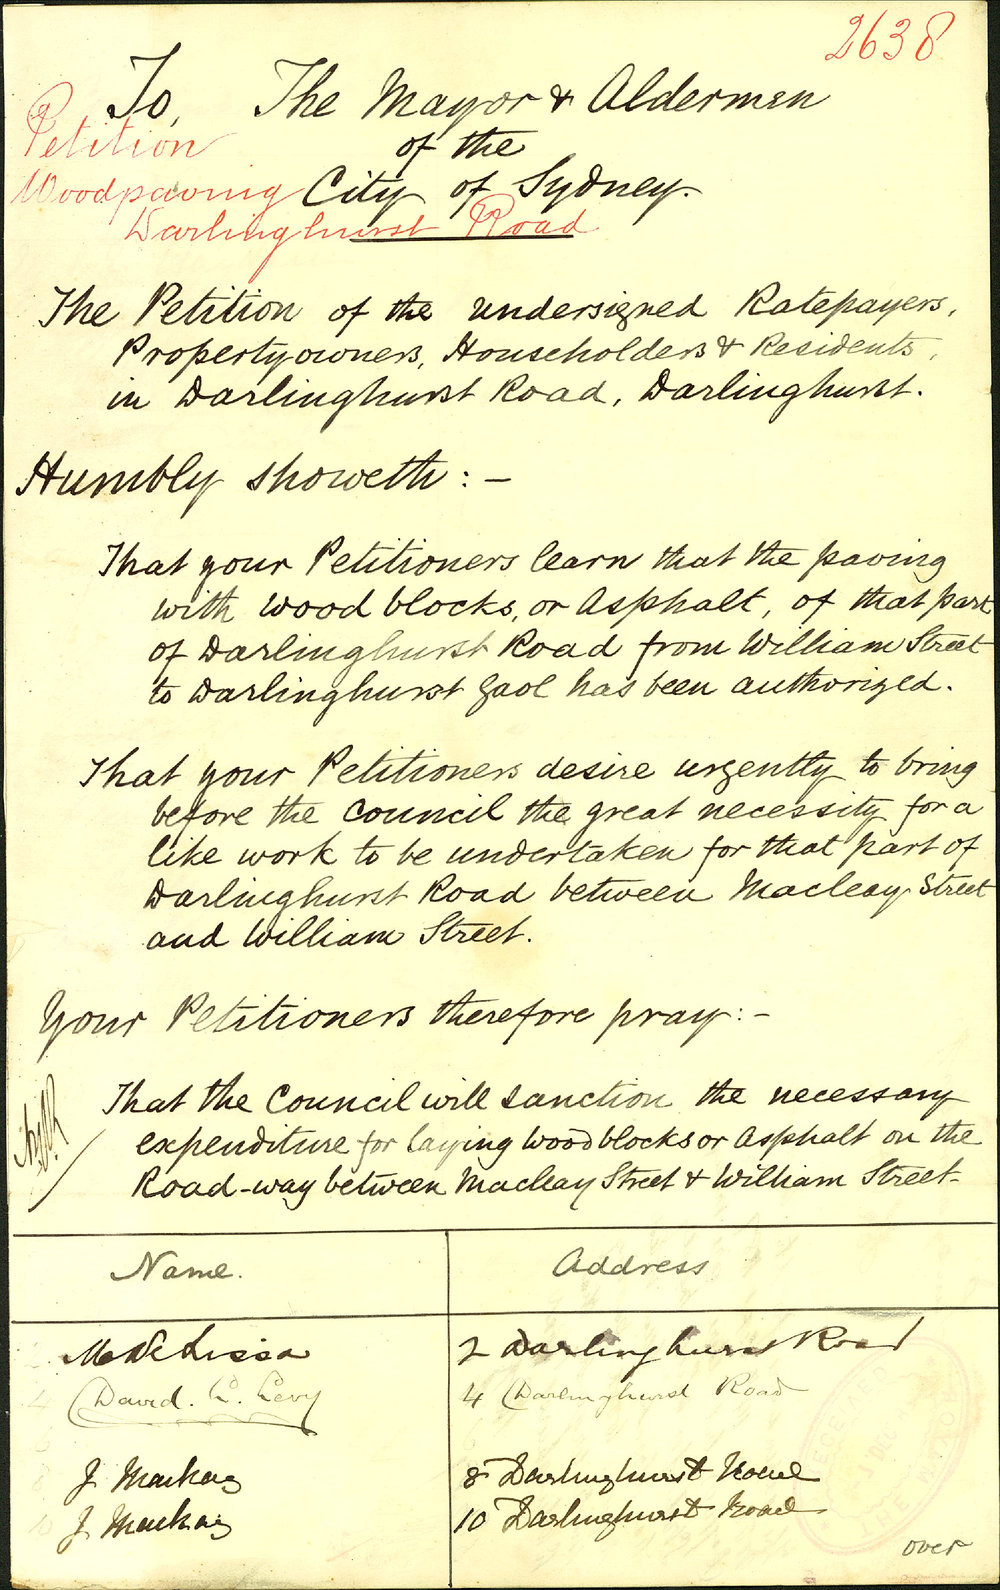 2638
To, The Mayor & Aldermen
of the
City of Sydney.
Petition
Woodpaving
Darlinghurst Road
The Petition of the undersigned Ratepayers,
Propertyowners, Householders & Residents,
in Darlinghurst Road, Darlinghurst.
Humbly showeth :-
That your Petitioners learn that the paving
with wood blocks, or Asphalt, of that part
of Darlinghurst Road from William Street
to Darlinghurst Gaol has been authorized.
That your Petitioners desire urgently to bring
before the Council the great necessity for a
like work to be undertaken for that part of
Darlinghurst Road between Macleay Street
and William Street.
Your Petitioners therefore pray :-
That the Council will sanction the necessary
expenditure for laying wood blocks or Asphalt on the
Road-way between Macleay Street & William Street-
Name. Address
De Lissa 2 Darlinghurst Road
David. L. Levy 4 Darlinghurst Road
J. Mackay 8 Darlinghurst Road
J. Mackay 10 Darlinghurst Road
over